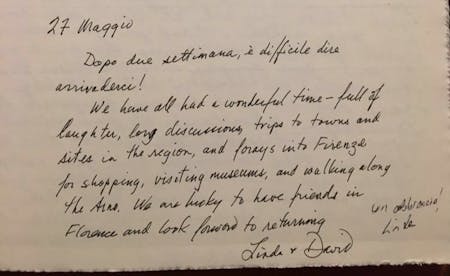 27 Maggio
Dopo due settimana, è difficile dire
arrivaderci!
We have all had a wonderful time - full of
laughter, long discussions, trips to towns and
sites in the region, and forays into Firenze
for shopping, visiting museums, and walking along
the Arno. We are lucky to have friends in
Florence and look forward to returning
un abbraccio!
Linda
Linda + David